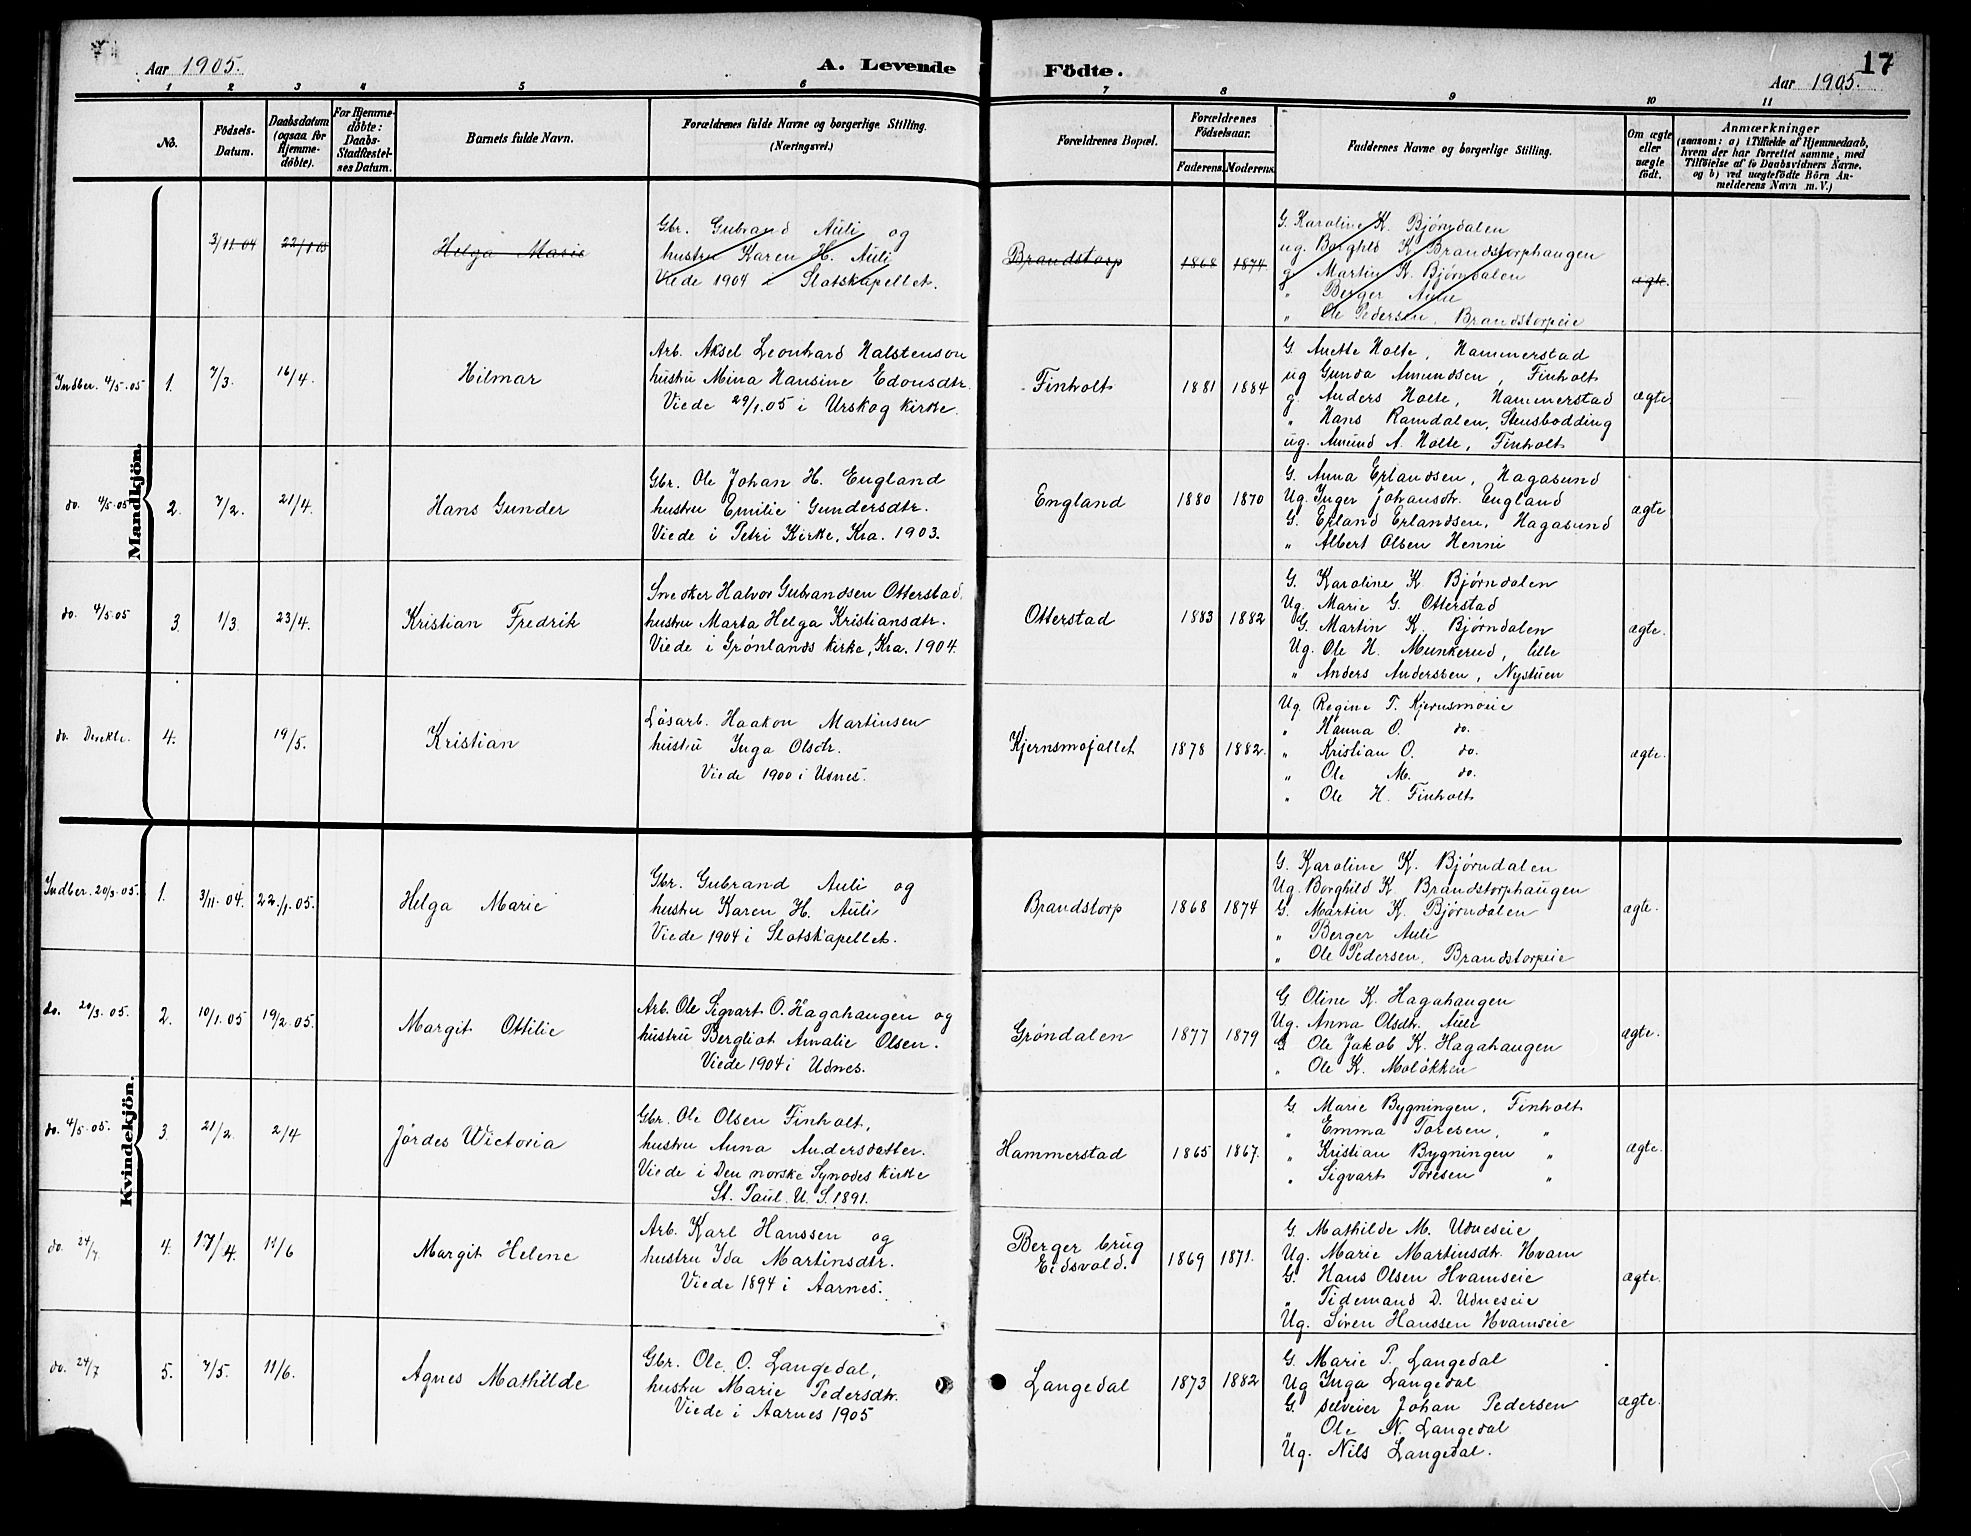 17
Aar 1905. A. Levende Födte. Aar 1905.
1 2 3 4 5 6 7 8 9 10 11
No.
Födsels-Datum.
Daabsdatum (ogsaa for Hjemme-döbte).
For Hjemme-döbte: Daabs-Stadfæstel-ses Datum.
Barnets fulde Navn.
Forældrenes fulde Navne og borgerlige Stilling.
(Næringsvei.)
Forældrenes Bopæl.
Forældrenes Födselsaar.
Faderens. Moderens.
Faddernes Navne og borgerlige Stilling.
Om ægte eller uægte födt.
Anmærkninger
(saasom: a) i Tilfælde af Hjemmedaab,
hvem der har forrettet samme, med
Tilföielse af to Daabsvidners Navne.
og b) ved uægtefödte Börn An-
melderens Navn m. V.)
Mandkjön.
3/11 04 22/1 05 Helga Marie
Gbr. Gubrand Auli og
hustru Karen H. Auli
Viede 1904 i Slotskapellet.
Brandstorp 1868 1874
G. Karoline K. Bjørndalen
ug. Borghild K Brandstorphaugen
g Martin K. Bjørndalen
" Berger Aulie
" Ole Pedersen, Brandstorpeie
ægte.
Indber. 4/5.05 1. 7/3. 16/4. Hilmar
Arb. Aksel Leonhard Halstenson
hustru Mina Hansine Edonsdtr.
Viede 29/1.05 i Urskog kirke.
Finholt 1881 1884
G. Anette Holte, Hammerstad
ug Gunda Amundsen, Finholt
g. Anders Holte, Hammerstad
" Hans Ramdalen, Stensbodding
ug. Amund A. Holte, Finholt
ægte
do. 4/5.05 2. 7/2. 21/4. Hans Gunder
Gbr. Ole Johan H. England
hustru Emilie Gundersdtr.
Viede i Petri Kirke, Kra. 1903.
England 1880 1870
G. Anna Erlandsen, Hagasund
Ug. Inger Johansdtr. England
G. Erland Erlandsen, Hagasund
" Albert Olsen Henni
ægte
do. 4/5.05 3. 1/3. 23/4. Kristian Fredrik
Snedker Halvor Gubrandsen Otterstad,
hustru Marta Helga Kristiansdtr.
Viede i Grønlands kirke, Kra. 1904.
Otterstad 1883 1882
G. Karoline K. Bjørndalen
Ug. Marie G. Otterstad
G. Martin K. Bjørndalen
Ug. Ole H. Munkerud, lille
" Anders Anderssen, Nystuen
ægte.
do. Direkte. 4. 19/5. Kristian
Løsarb. Haakon Martinsen
hustru Inga Olsdtr.
Viede 1900 i Udnes.
Kjernsmofallet 1878 1882.
Ug. Regine T. Kjernsmoeie
" Hanna O. do.
" Kristian O. do.
" Ole M. do.
" Ole H. Finholt
ægte.
Kvindekjön.
Indber. 20/3.05. 1. 3/11.04. 22./1.05. Helga Marie
Gbr. Gubrand Auli og
hustru Karen H. Auli
Viede 1904 i Slotskapellet.
Brandstorp 1868 1874
G. Karoline K. Bjørndalen
Ug. Borghild K. Brandstorphaugen
G. Martin K. Bjørndalen
" Berger Auli
" Ole Pedersen, Brandstorpeie
ægte.
do. 20/3.05. 2. 10/1.05 19/2.05. Margit Ottilie
Arb. Ole Sigvart O. Hagahaugen og
hustru Bergliot Amalie Olsen.
Viede 1904 i Udnes.
Grøndalen 1877 1879
G Oline K. Hagahaugen
Ug. Anna Olsdtr. Auli
G Ole Jakob K. Hagahaugen
" Ole K. Moløkken
ægte.
do. 4/5.05. 3. 21/2. 2/4 Jördes Wictoria
Gbr. Ole Olsen Finholt,
hustru Anna Andersdatter.
Viede i Den norske Synodes kirke
St. Paul. U. S. 1891.
Hammerstad 1865 1867.
G Marie Bygningen, Finholt
" Emma Toresen, "
" Kristian Bygningen "
" Sigvart Toresen "
ægte.
do. 24/7. 4. 17/4. 11/6 Margit Helene
Arb. Karl Hanssen og
hustru Ida Martinsdtr.
Viede 1894 i Aarnes.
Berger brug
Eidsvold.
1869 1871.
G. Mathilde M. Udneseie
Ug. Marie Martinsdtr. Hvam
G. Hans Olsen Hvamseie
" Tidemand D. Udneseie
Ug. Søren Hanssen Hvamseie
ægte.
do. 24/7 5. 7/5. 11/6. Agnes Mathilde
Gbr. Ole O. Langedal,
hustru Marie Pedersdtr.
Viede i Aarnes 1905
Langedal 1873 1882
G. Marie P. Langedal
Ug Inga Langedal
G. selveier Johan Pedersen
" Ole N. Langedal
Ug. Nils Langedal.
ægte.